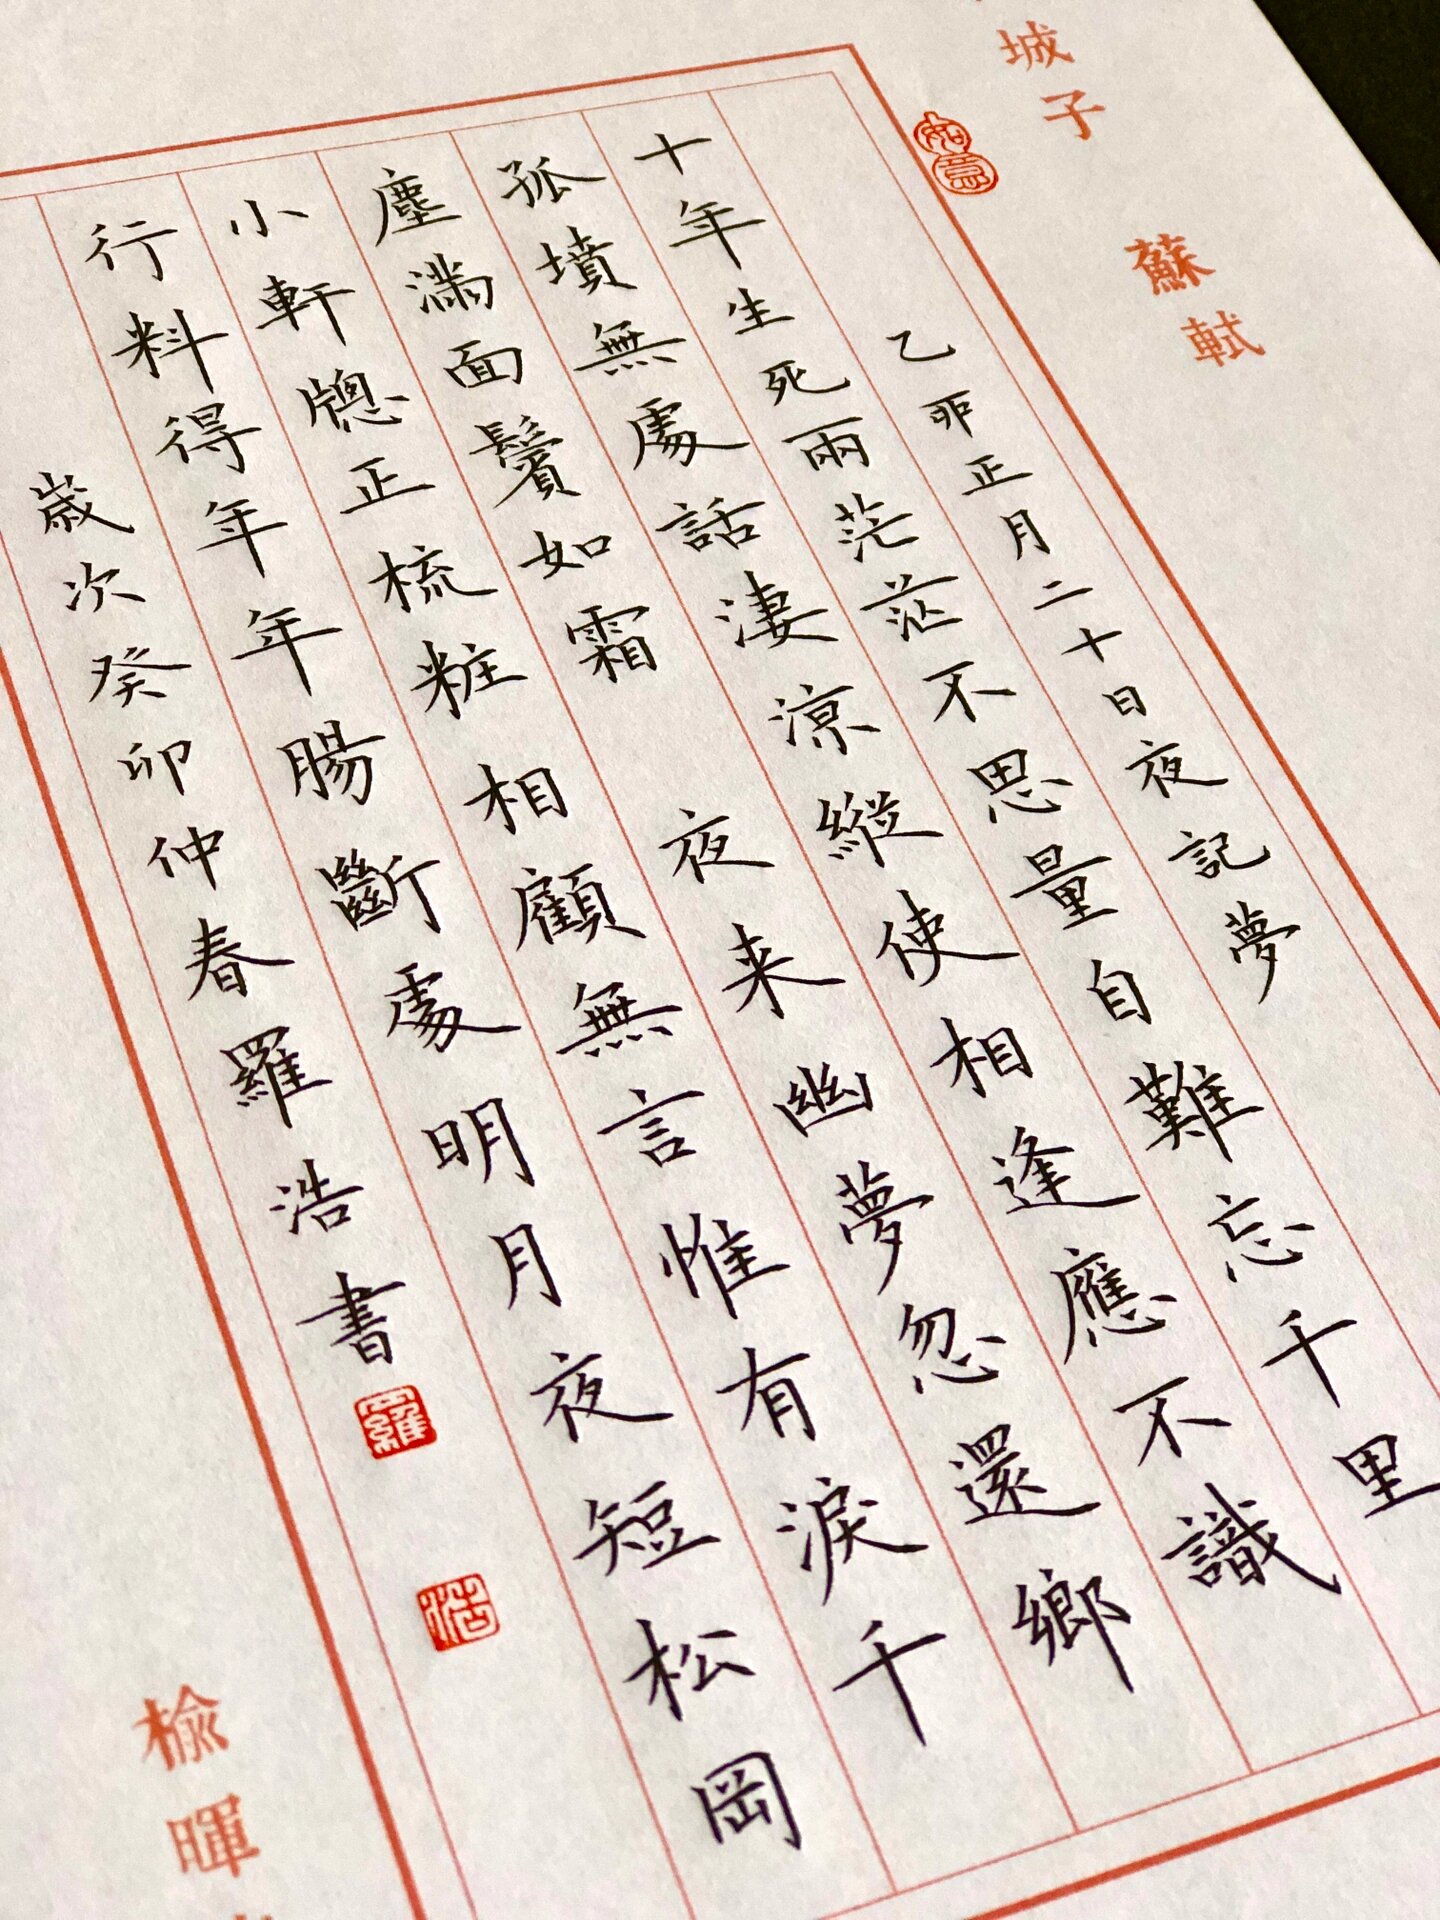 城子 蘇軾
如意
乙卯正月二十日夜記夢
十年生死兩茫茫不思量自難忘千里
孤墳無處話淒涼縱使相逢應不識
塵滿面鬢如霜 夜来幽夢忽還鄉
小軒牕正梳粧相顧無言惟有淚千
行料得年年腸斷處明月夜短松岡
歲次癸卯仲春羅浩書
羅
浩
榆暉